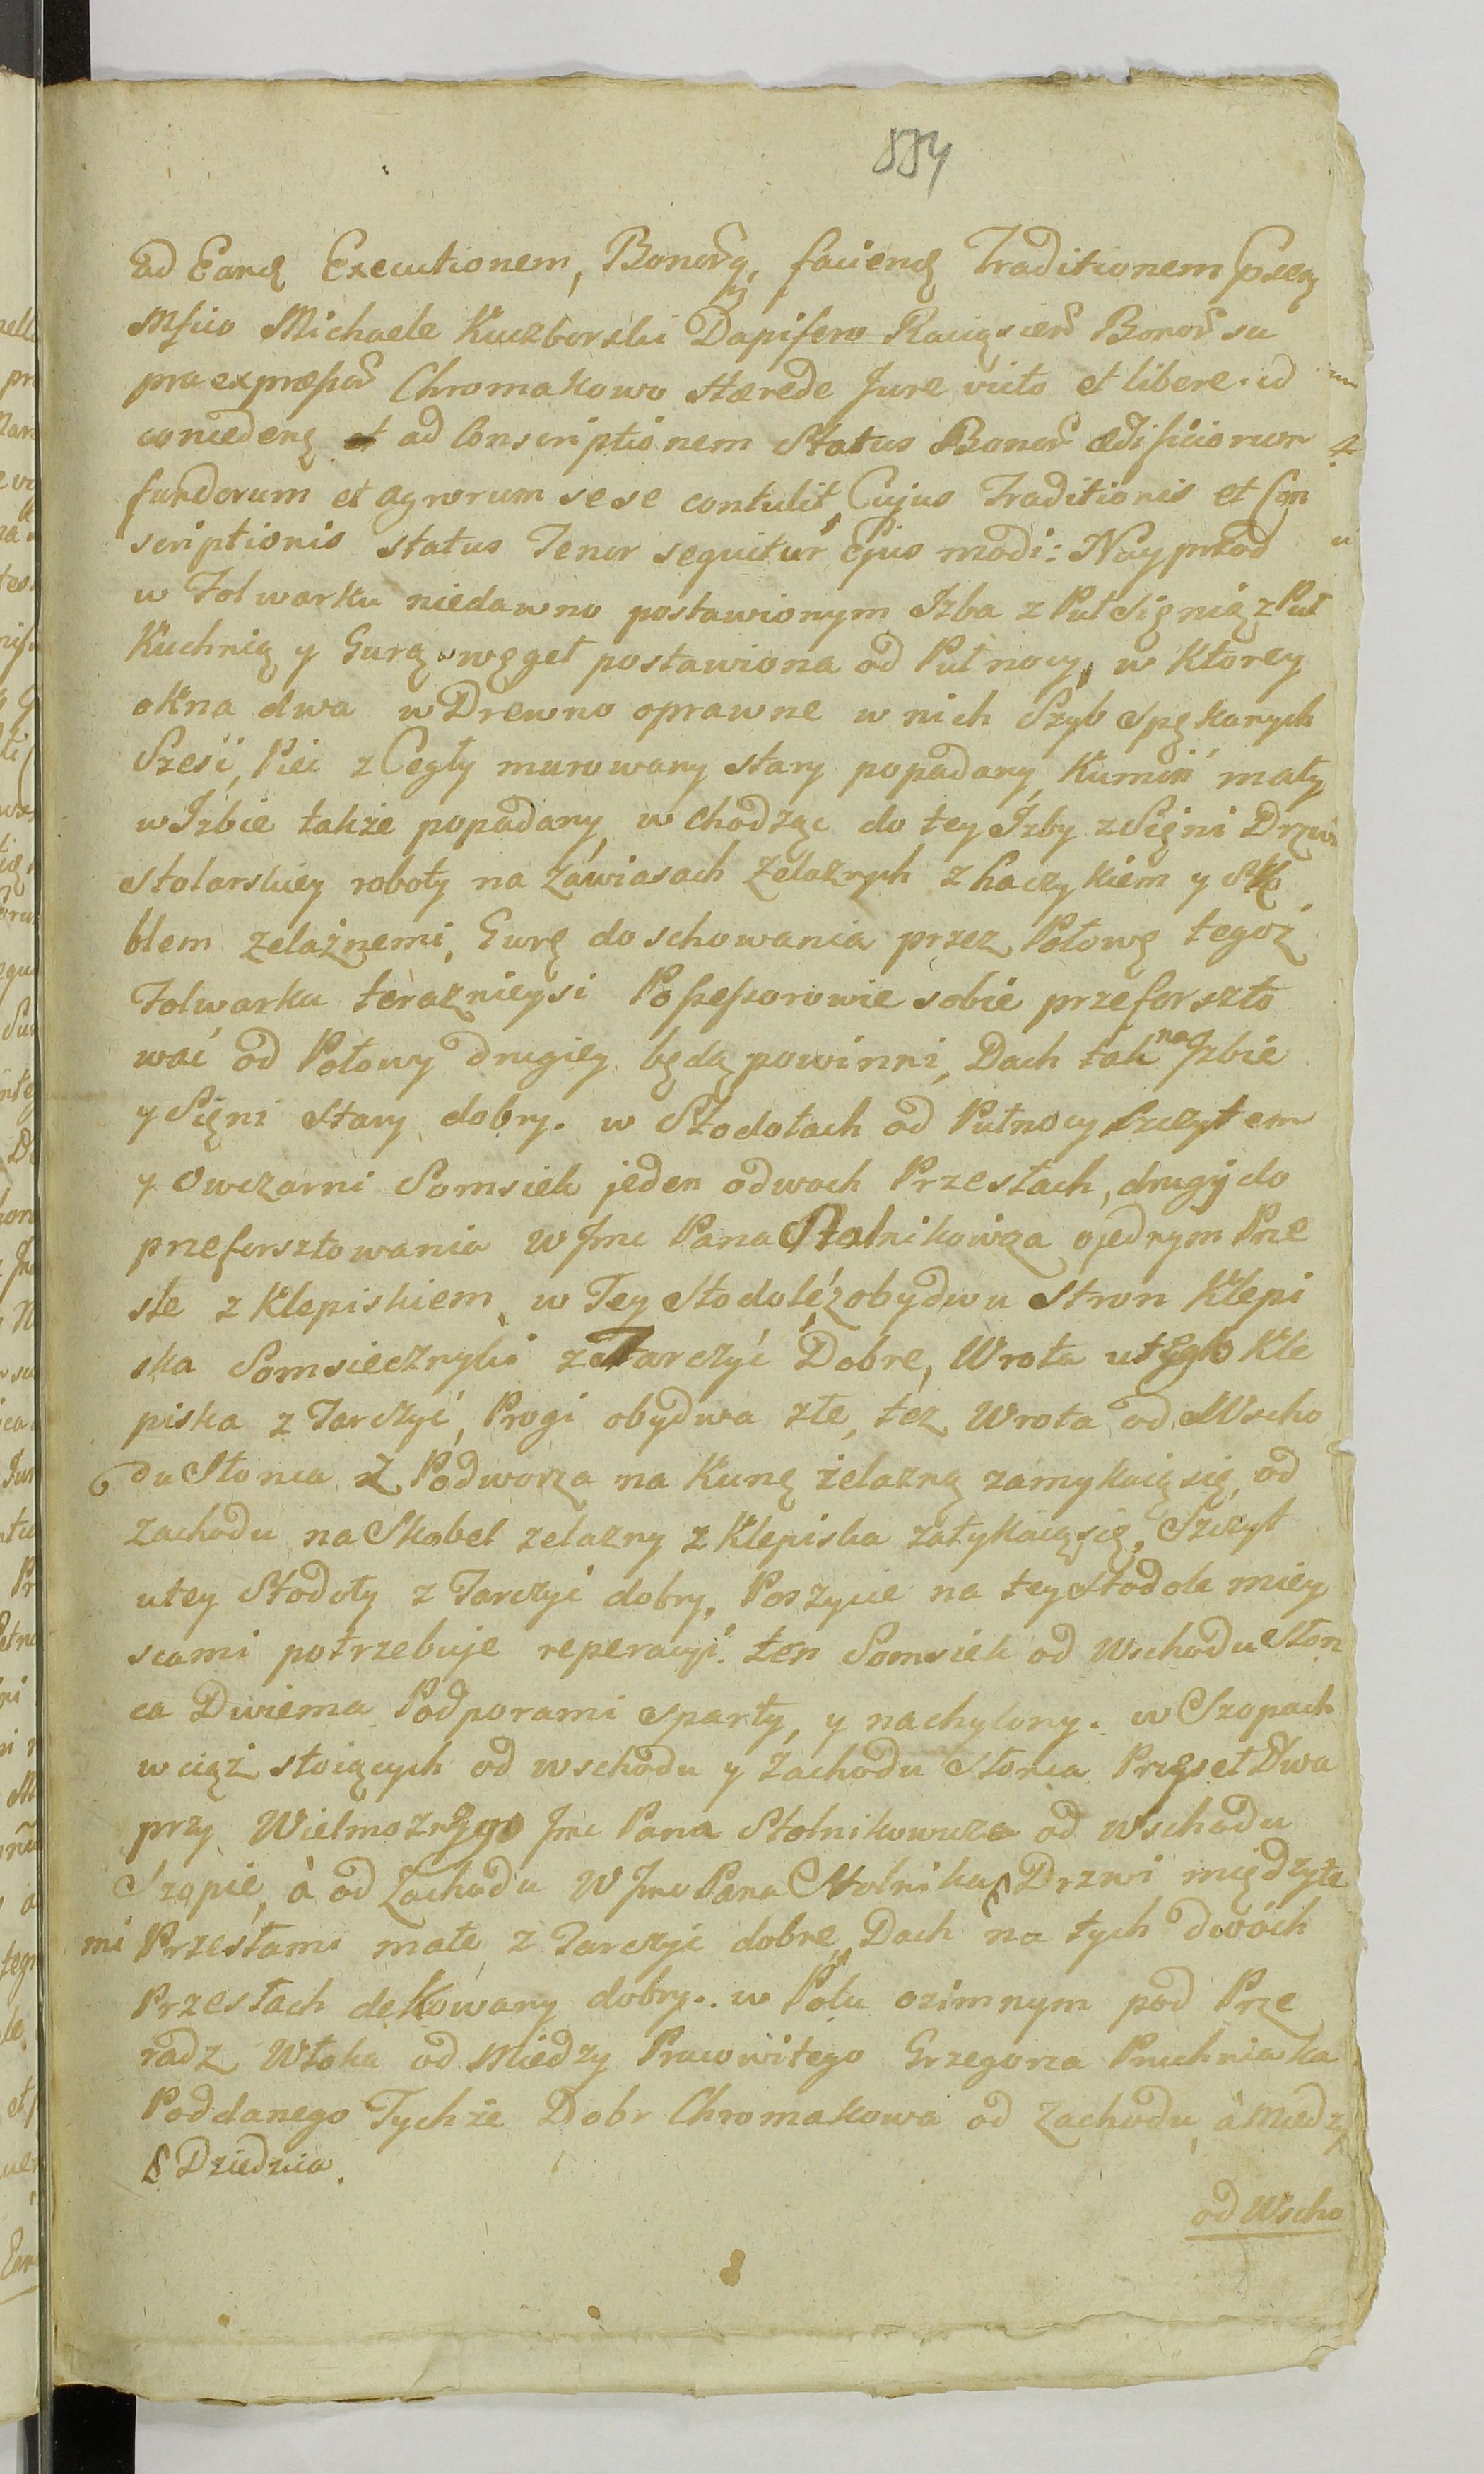 884
ad Eand Executionem, Bonorq, faciend Traditionem Pnte
Mfico Michaele Kuczborski Dapifero Raciąscen Bonor su
pra expræssor Chromakowo Hærede Jure victo et libere id
conceden et ad Conscriptionem Status Bonor ædificiorum
fundorum et agrorum sese contulit, Cujus Traditionis et Con
scriptionis status Tenor sequitur Ejus modi: Nayprzod
w Folwarku niedawno postawionym Izba z Puł Sięnią z Puł
Kuchnią y Gurą w węgeł postawiona od Pułnocy, w Ktorey
okna dwa w Drewno oprawne w nich Szyb spękanych
Sześć, Piec z Cegły murowany stary popadany, Kumin mały
w Izbie także popadany, w chodząc do tey Izby z Sięni Drzwi
stolarskiey roboty na Zawiasach Zelaznych z haczykiem y Sko
blem zelaźnemi, Gurę do schowania przez Połowę tegoż
Folwarku teraznieysi Possessorowie sobie przeforszto
wać od Połowy drugiey będą powinni, Dach tak na Izbie
y Sięni stary dobry. w Stodołach od Pułnocy Szczytem
y Owczarni Somsiek jeden o dwoch Przesłach, drugi do
przeforsztowania W Jmc Pana Stolnikowicza o jednym Prze
śle z Klepiskiem, w Tey Stodole z obydwu stron Klepi
ska Somsieczniki z Tarczyć Dobre, Wrota u tego Kle
piska z Tarczyć, Progi obydwa złe, też Wrota od Wscho
du Słonca z Podworza na Kunę żelazną zamykaią się, od
zachodu na Skobel zelazny z Klepiska zatykaią się, Szczyt
u tey Stodoły z Tarczyć dobry, Poszycie na tey stodole miey
scami potrzebuje reperacyi. ten Somsiek od Wschodu Słon
ca Dwiema Podporami sparty, y nachylony. w Szopach
w ciąż stoiących od wschodu y zachodu Słonca Przęseł Dwa
przy Wielmoznego Jmc Pana Stolnikowicza od Wschodu
Szopie, à od Zachodu W Jmc Pana Stolnika Drzwi między te
mi Przesłami małe z Tarczyć dobre, Dach na tych dwóch
Przesłach dekowany dobry. w Polu ozimnym pod Prze
radz Włoka od Miedzy Pracowitego Grzegorza Pruchniaka
Poddanego Tychże Dobr Chromakowa od zachodu, à Miedzy
Dziedzica.
od Wscho